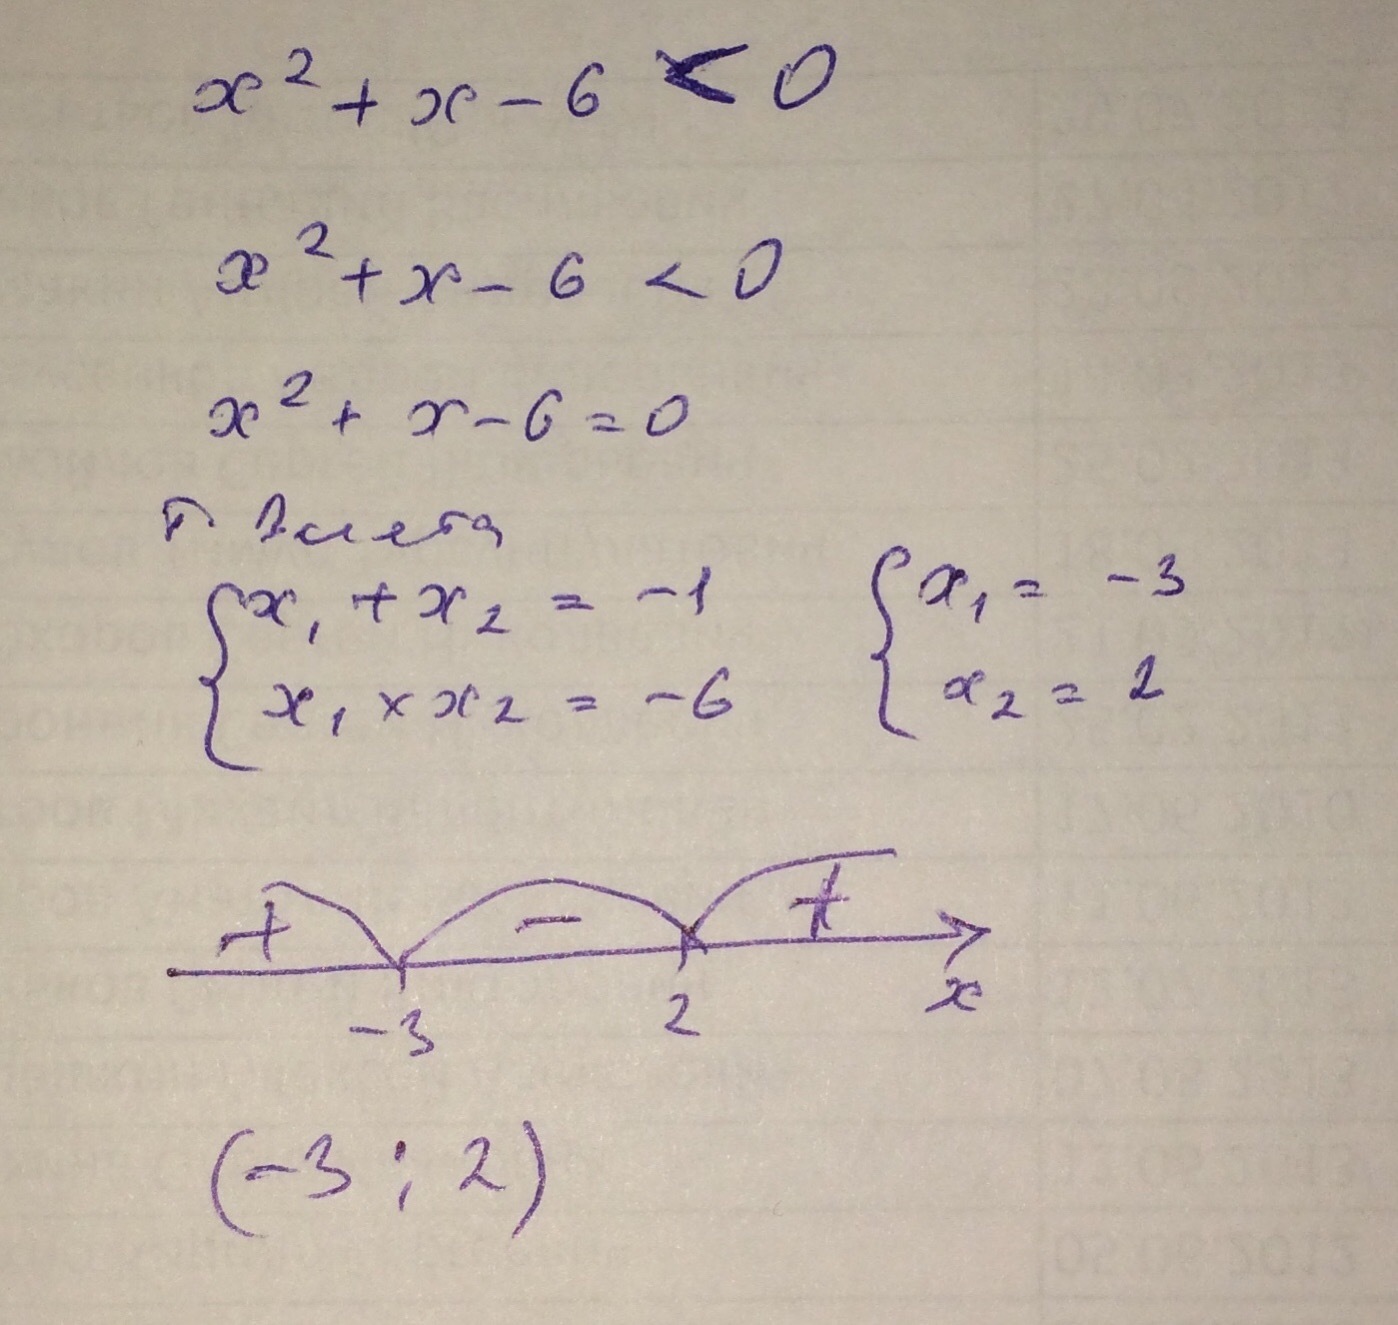 x² + x - 6 < 0
x² + x - 6 < 0
x² + x - 6 = 0
Т Виета
{ x₁ + x₂ = -1 { x₁ = -3
{ x₁ × x₂ = -6 { x₂ = 2
+ - +
-3 2 x
(-3 ; 2)